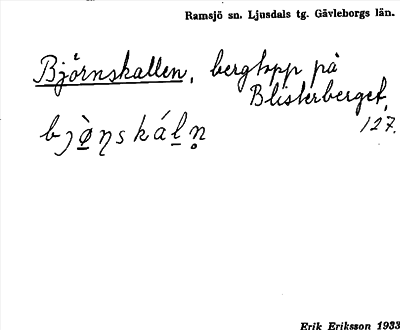 Ramsjö sn. Ljusdals tg. Gävleborgs län.
Björnskallen, bergtopp på
Blisterberget,
127.
bjø̠̀ņskáḻn̥
Erik Eriksson 1933